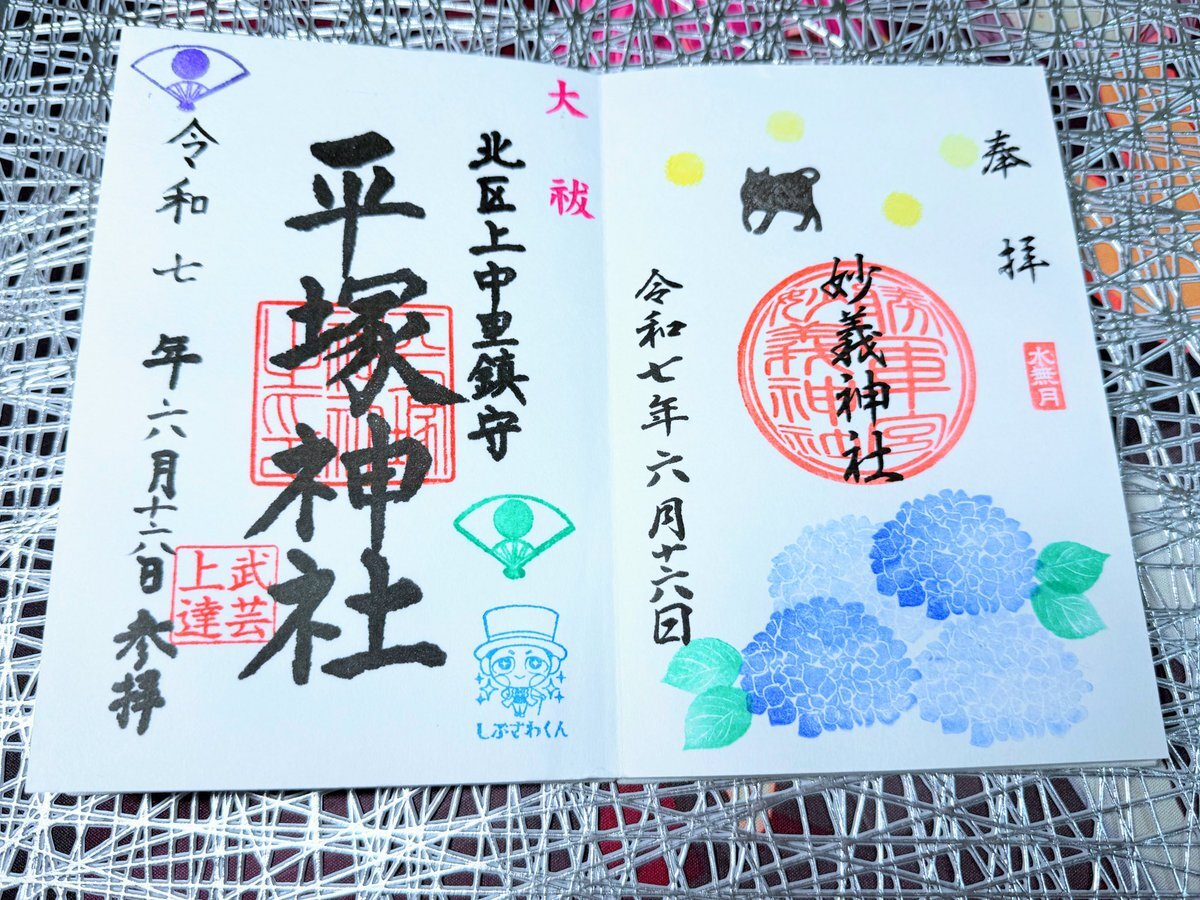 奉拝
水無月
妙義神社
勝軍宮
妙義神社
令和七年六月十六日
大祓
北区上中里鎮守
しぶざわくん
平塚神社
武芸
上達
令和七年六月十六日参拝